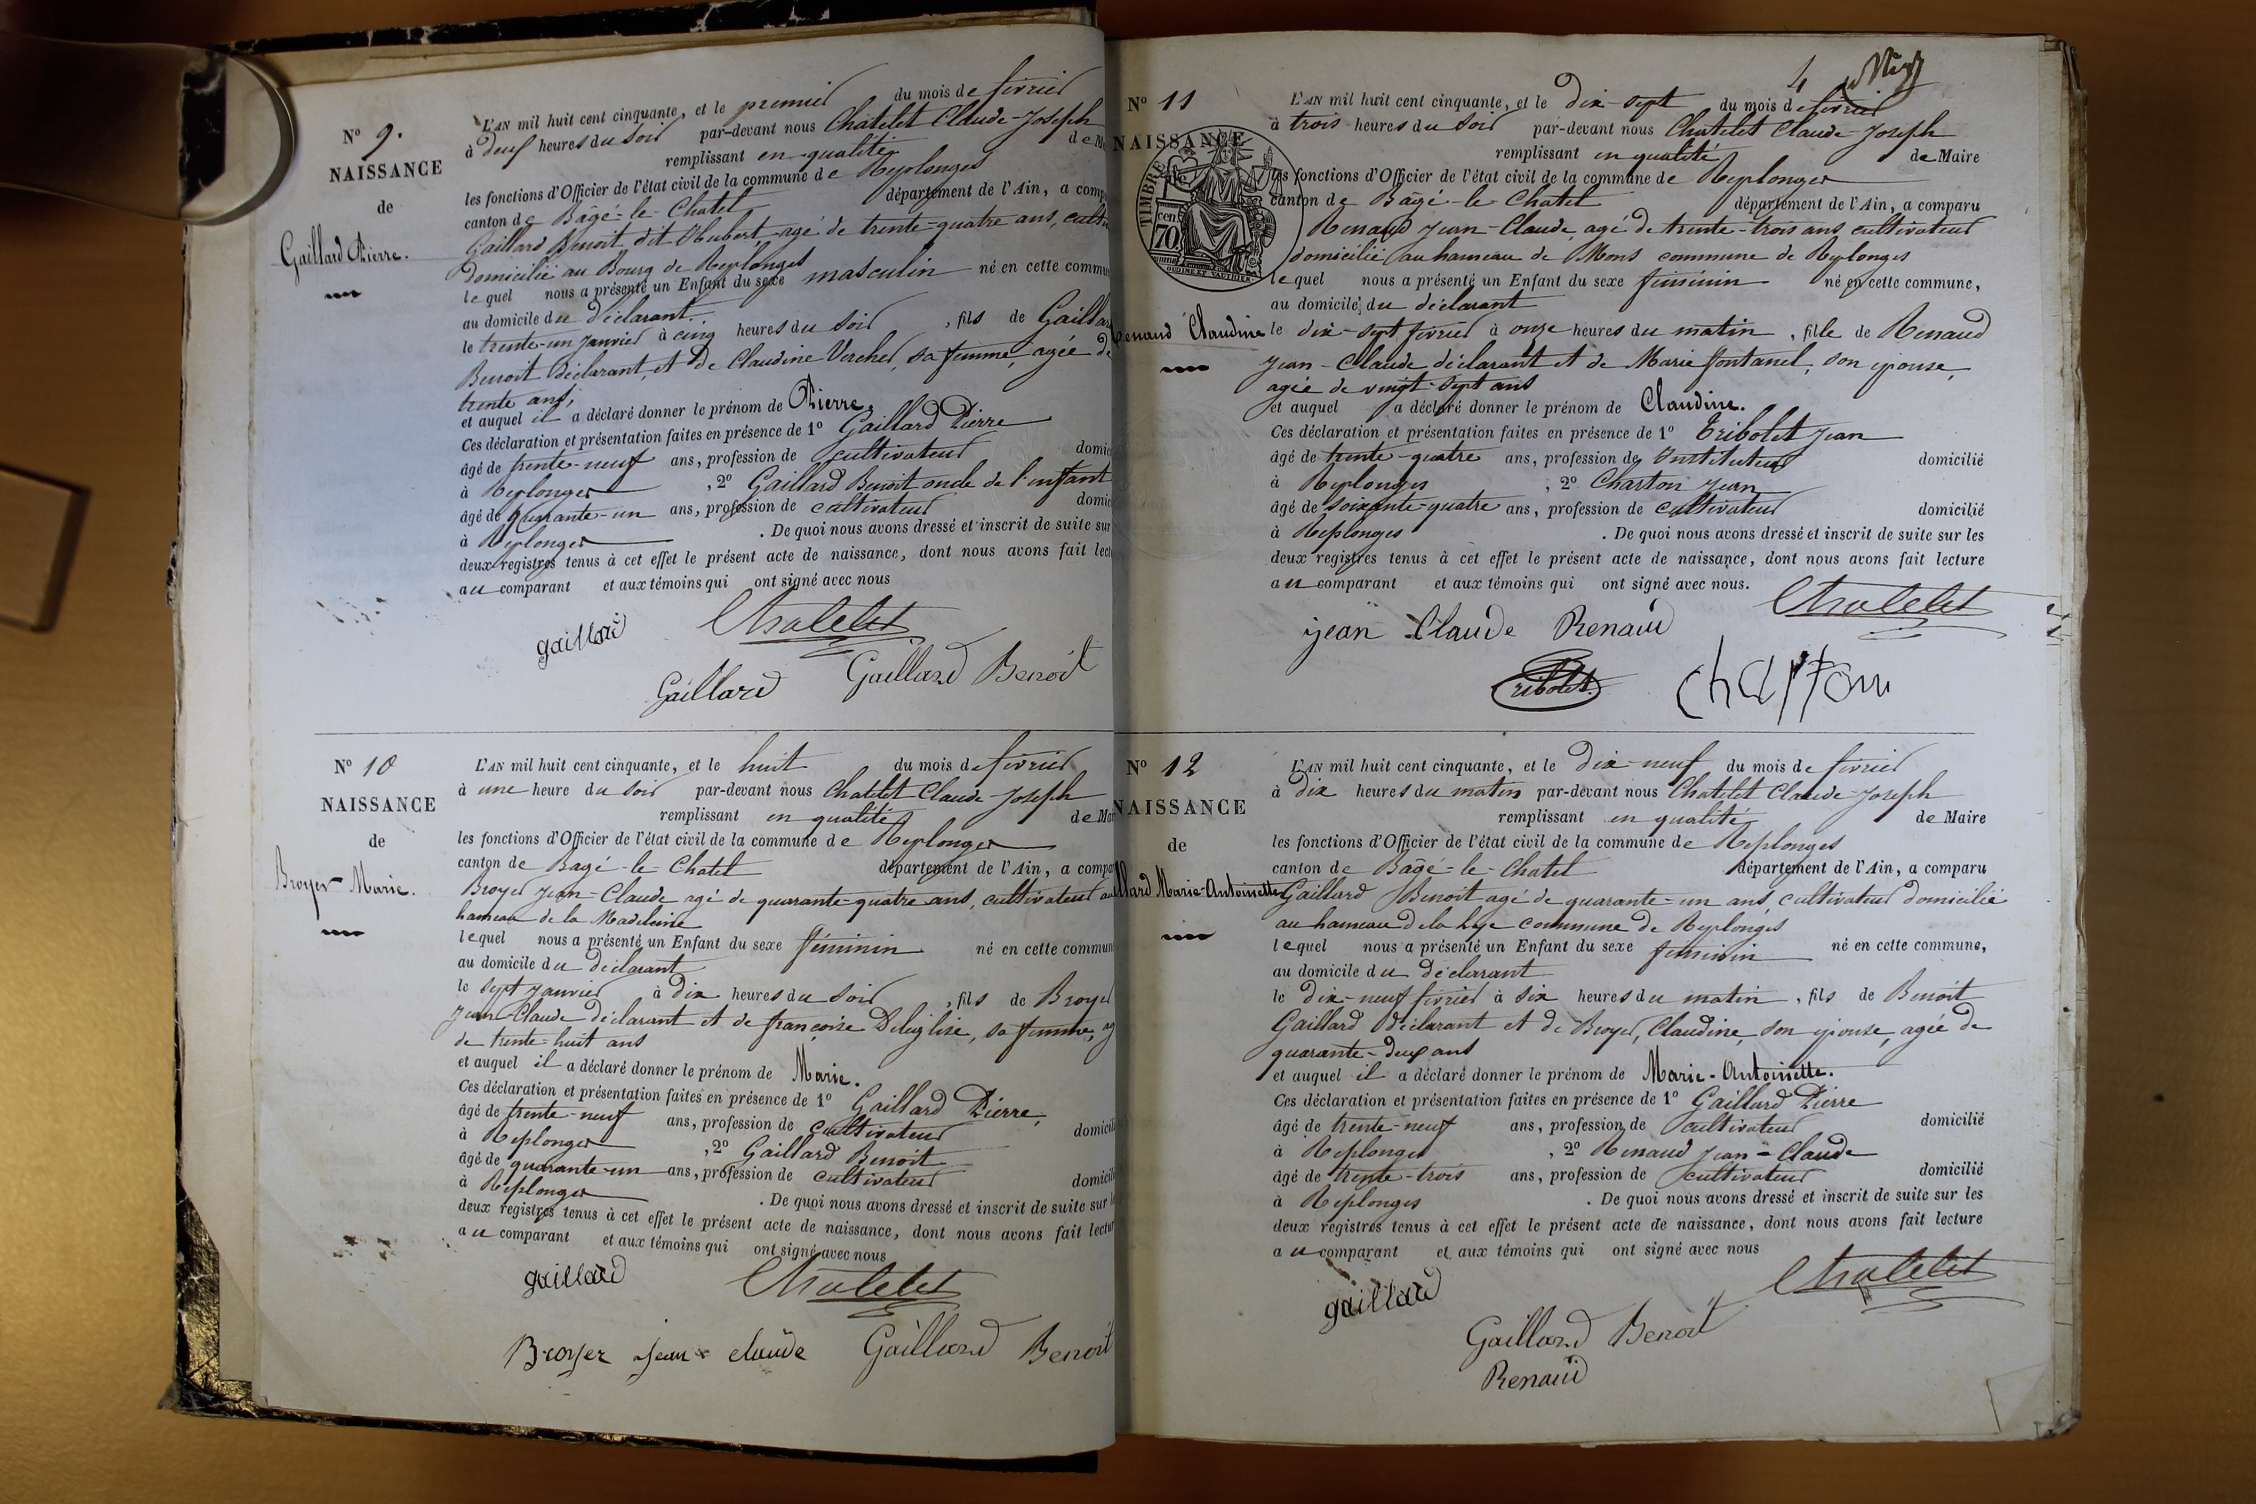 Nº 9.
NAISSANCE
de
Gaillard Pierre.
L'AN mil huit cent cinquante, et le premier du mois de février
à deux heures du soir par-devant nous Chatelet Claude-Joseph
remplissant en qualité de M
les fonctions d'Officier de l'état civil de la commune de Replonges
canton de Bâgé-le-Chatel département de l'Ain, a comp
Gaillard Benoit dit Hubert agé de trente-quatre ans, cultiv
domicilié au Bourg de Replonges
lequel nous a présenté un Enfant du sexe masculin né en cette commu
au domicile du déclarant
le trente-un janvier à cinq heures du soir, fils de Gaillar
Benoit déclarant, et de Claudine Vercher, sa femme, agée de
trente ans,
et auquel il a déclaré donner le prénom de Pierre.
Ces déclaration et présentation faites en présence de 1º Gaillard Pierre
âgé de trente-neuf ans, profession de cultivateur domic
à Replonges, 2º Gaillard Benoit oncle de l'enfant
âgé de quarante-un ans, profession de cultivateur domic
à Replonges. De quoi nous avons dressé et inscrit de suite sur
deux registres tenus à cet effet le présent acte de naissance, dont nous avons fait lect
au comparant et aux témoins qui ont signé avec nous
gaillard Chatelet
Gaillard Gaillard Benoit
Nº 10
NAISSANCE
de
Broyer Marie.
L'AN mil huit cent cinquante, et le huit du mois de février
à une heure du soir par-devant nous Chatelet Claude-Joseph
remplissant en qualité de Mai
les fonctions d'Officier de l'état civil de la commune de Replonges
canton de Bagé-le-Chatel département de l'Ain, a compa
Broyer Jean-Claude agé de quarante-quatre ans, cultivateur au
hameau de la Madeleine
lequel nous a présenté un Enfant du sexe féminin né en cette commun
au domicile du déclarant
le sept janvier à dix heures du soir, fils de Broyer
Jean-Claude déclarant et de françoise Deléglise, sa femme, ag
de trente-huit ans
et auquel il a déclaré donner le prénom de Marie.
Ces déclaration et présentation faites en présence de 1º Gaillard Pierre,
âgé de trente-neuf ans, profession de cultivateur domicili
à Replonges, 2º Gaillard Benoit
âgé de quarante-un ans, profession de cultivateur domicili
à Replonges. De quoi nous avons dressé et inscrit de suite sur l
deux registres tenus à cet effet le présent acte de naissance, dont nous avons fait lectur
au comparant et aux témoins qui ont signé avec nous
gaillard Chatelet
Broyer jean claude Gaillard Benoit
4
Nº 11
NAISSANCE
TIMBRE
cen
70
Renaud Claudine
L'AN mil huit cent cinquante, et le dix-sept du mois de février
à trois heures du soir par-devant nous Chatelet Claude-Joseph
remplissant en qualité de Maire
les fonctions d'Officier de l'état civil de la commune de Replonges
canton de Bâgé-le-Chatel département de l'Ain, a comparu
Renaud Jean-Claude, agé de trente-trois ans, cultivateur
domicilié au hameau de Mons commune de Replonges
lequel nous a présenté un Enfant du sexe féminin né en cette commune,
au domicile du déclarant
le dix-sept février à onze heures du matin, fille de Renaud
Jean-Claude déclarant et de Marie Fontanel, son épouse,
agée de vingt-sept ans
et auquel a déclaré donner le prénom de Claudine.
Ces déclaration et présentation faites en présence de 1º Tribolet Jean
âgé de trente-quatre ans, profession de Instituteur domicilié
à Replonges, 2º Charton Jean
âgé de soixante-quatre ans, profession de cultivateur domicilié
à Replonges. De quoi nous avons dressé et inscrit de suite sur les
deux registres tenus à cet effet le présent acte de naissance, dont nous avons fait lecture
au comparant et aux témoins qui ont signé avec nous.
Chatelet
jean Claude Renaud
Tribolet charton
Nº 12
NAISSANCE
de
illard Marie-Antoinette
L'AN mil huit cent cinquante, et le dix-neuf du mois de février
à dix heures du matin par-devant nous Chatelet Claude-Joseph
remplissant en qualité de Maire
les fonctions d'Officier de l'état civil de la commune de Replonges
canton de Bâgé-le-Chatel département de l'Ain, a comparu
Gaillard Benoit agé de quarante-un ans, cultivateur domicilié
au hameau de la commune de Replonges
lequel nous a présenté un Enfant du sexe féminin né en cette commune,
au domicile du déclarant
le dix-neuf février à six heures du matin, fils de Benoit
Gaillard déclarant et de Broyer, Claudine, son épouse, agée de
quarante-deux ans
et auquel il a déclaré donner le prénom de Marie-Antoinette.
Ces déclaration et présentation faites en présence de 1º Gaillard Pierre
âgé de trente-neuf ans, profession de cultivateur domicilié
à Replonges, 2º Renaud Jean-Claude
âgé de trente-trois ans, profession de cultivateur domicilié
à Replonges. De quoi nous avons dressé et inscrit de suite sur les
deux registres tenus à cet effet le présent acte de naissance, dont nous avons fait lecture
au comparant et aux témoins qui ont signé avec nous
gaillard Chatelet
Gaillard Benoit
Renaud